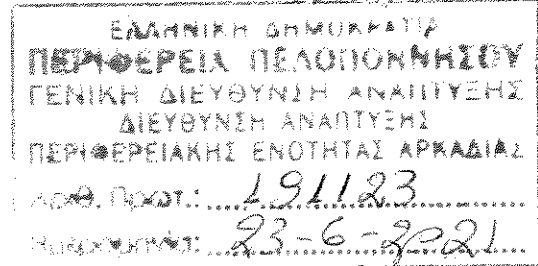 ΕΛΛΗΝΙΚΗ ΔΗΜΟΚΡΑΤΙΑ
ΠΕΡΙΦΕΡΕΙΑ ΠΕΛΟΠΟΝΝΗΣΟΥ
ΓΕΝΙΚΗ ΔΙΕΥΘΥΝΣΗ ΑΝΑΠΤΥΞΗΣ
ΔΙΕΥΘΥΝΣΗ ΑΝΑΠΤΥΞΗΣ
ΠΕΡΙΦΕΡΕΙΑΚΗΣ ΕΝΟΤΗΤΑΣ ΑΡΚΑΔΙΑΣ
Αριθ. Πρωτ.: 191123
Ημερομηνία: 23-6-2021